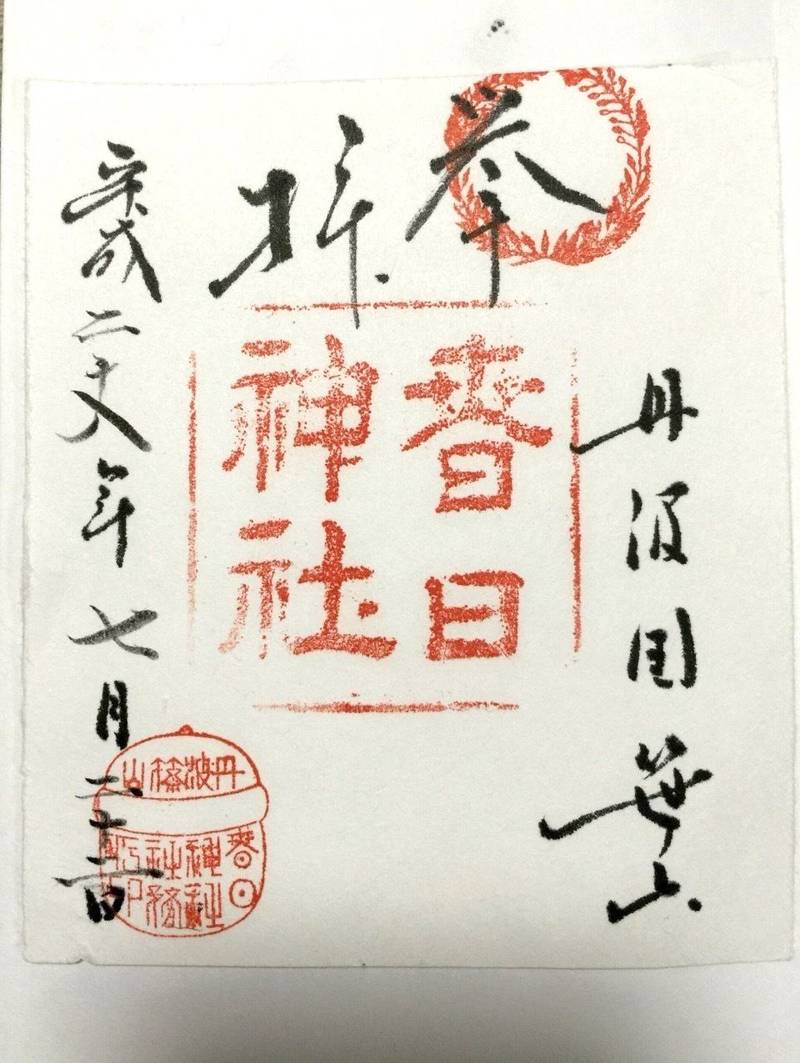 丹波国笹山
奉拝
春日
神社
平成二十八年七月二十三日
丹波篠山
春日
神社
社務
所印